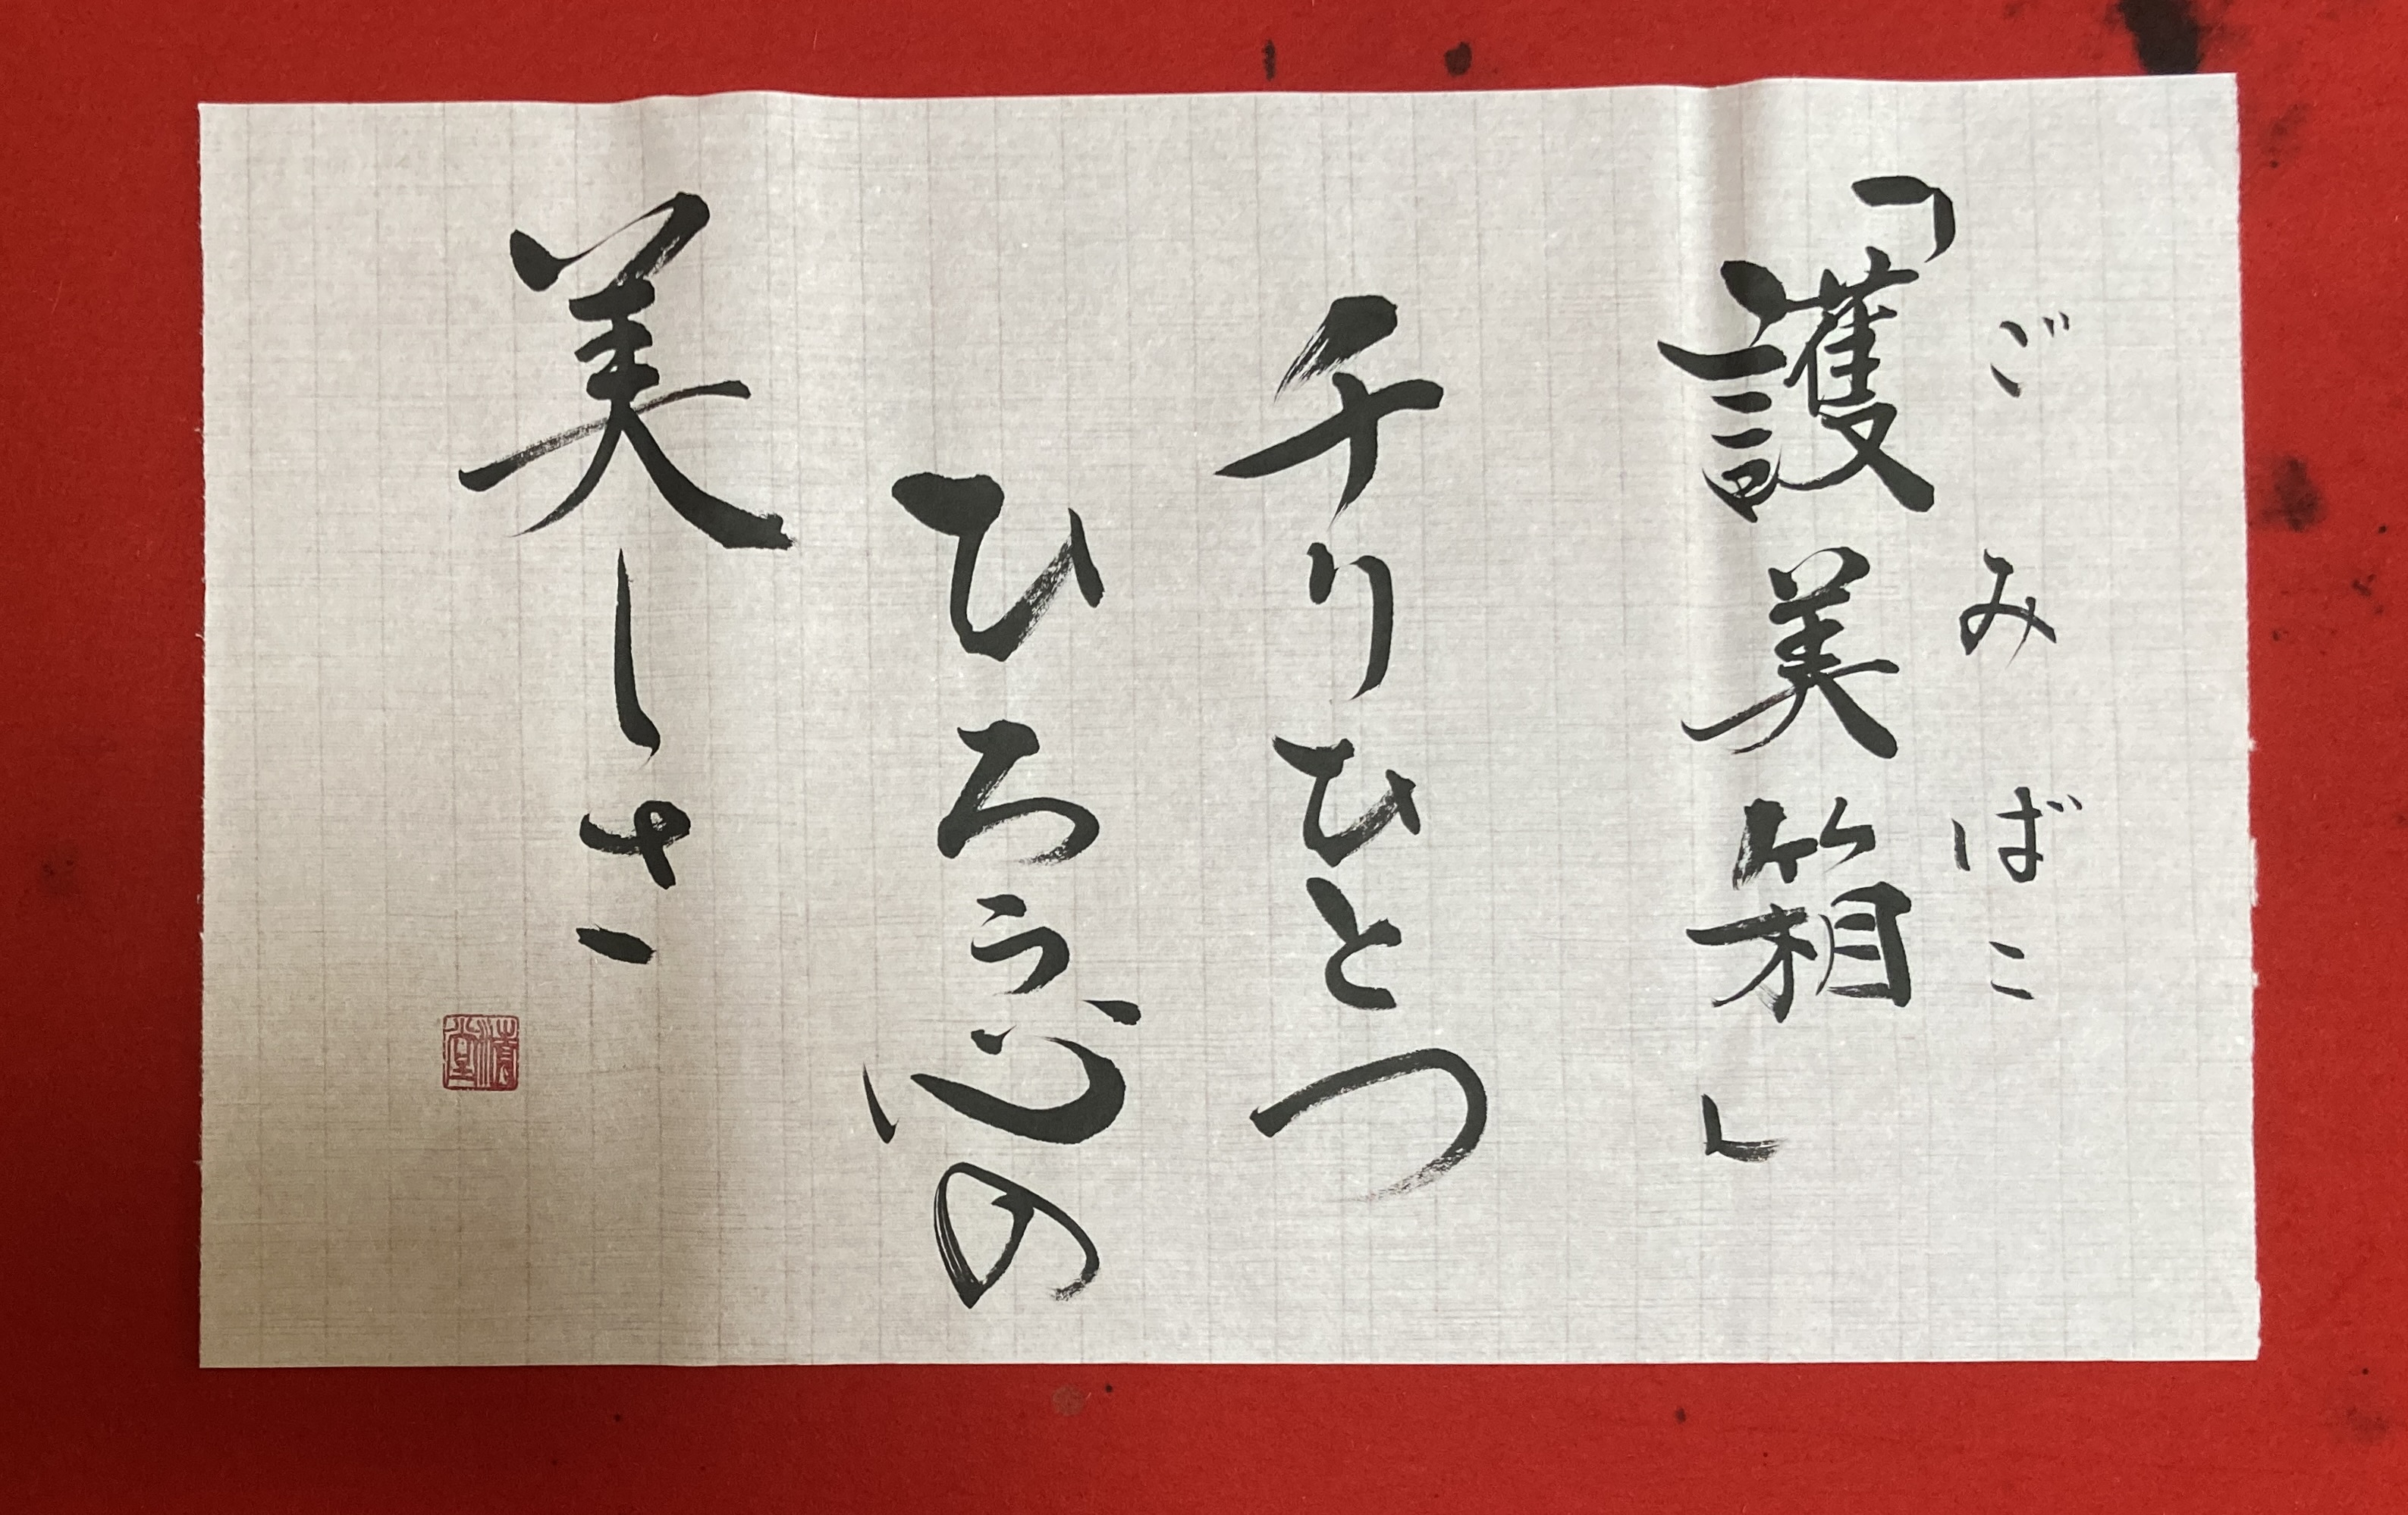 ごみばこ
「護美箱」
チリひとつ
ひろう心の
美しさ
清堂